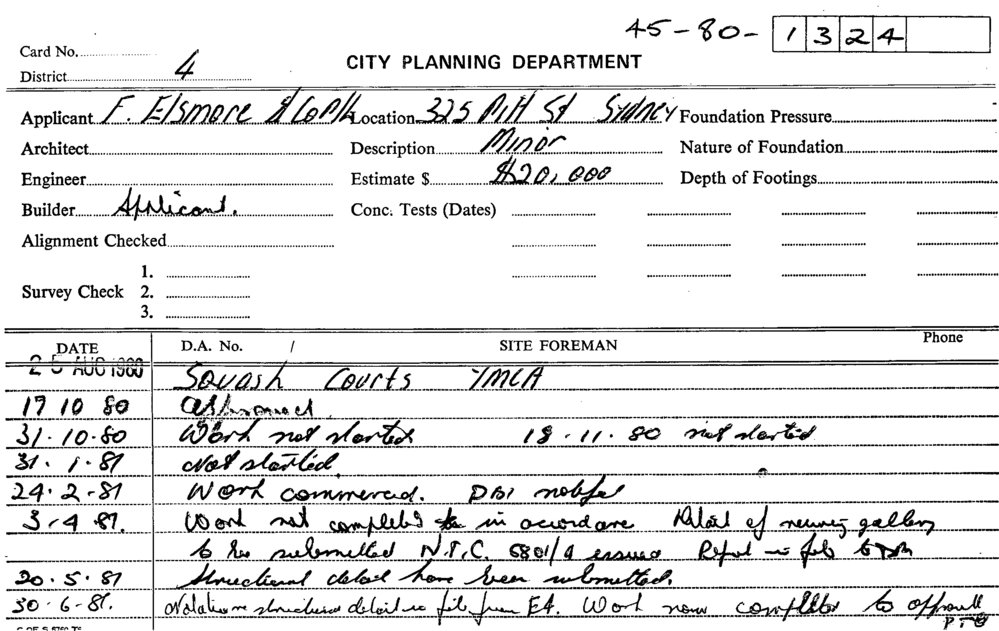 45-80- 1324
Card No.
District 4
CITY PLANNING DEPARTMENT
Applicant F. Elsmore & Co P/L Location 325 Pitt St Sydney Foundation Pressure
Architect Description Minor Nature of Foundation
Engineer Estimate $ $20,000 Depth of Footings
Builder Applicant. Conc. Tests (Dates)
Alignment Checked
1.
Survey Check 2.
3.
DATE D.A. No. / SITE FOREMAN Phone
25 AUG 1980 Squash Courts YMCA
17 10 80 approved
31.10.80 Work not started 18.11.80 not started
31.1.81 Not started.
24.2.81 Work commenced. DBI
3.4.81. Work not completed in Detail of viewing gallery
to be submitted N.T.C. 6801/a issued Report in file to
20.5.81 Structural detail have been submitted.
30.6.81. Notation structural detail in file from Work now completed to approval